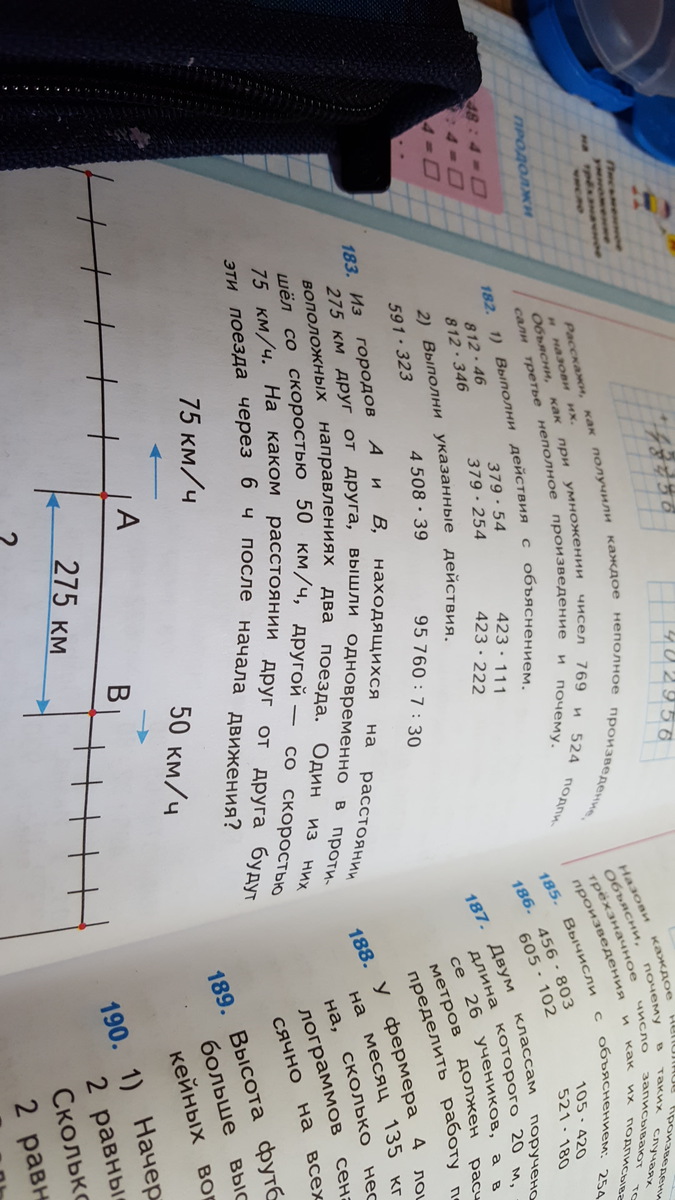 Письменное
умножение
на трёхзначное
число
ПРОДОЛЖИ
48 : 4 = □
: 4 = □
4 = □
402956
Расскажи, как получили каждое неполное произведение,
и назови их.
Объясни, как при умножении чисел 769 и 524 подпи-
сали третье неполное произведение и почему.
182. 1) Выполни действия с объяснением.
812 · 46 379 · 54 423 · 111
812 · 346 379 · 254 423 · 222
2) Выполни указанные действия.
591 · 323 4 508 · 39 95 760 : 7 : 30
183. Из городов А и В, находящихся на расстоянии
275 км друг от друга, вышли одновременно в проти-
воположных направлениях два поезда. Один из них
шёл со скоростью 50 км/ч, другой — со скоростью
75 км/ч. На каком расстоянии друг от друга будут
эти поезда через 6 ч после начала движения?
75 км/ч 50 км/ч
А В
275 км
?
Назови каждое неполное произведение
Объясни, почему в таких случаях
трёхзначное число записывают
произведения и как их подписыв
185. Вычисли с объяснением.
186. 456 · 803 105 · 420
605 · 102 521 · 180
187. Двум классам поручено
длина которого 20 м,
се 26 учеников, а в
метров должен рас-
пределить работу п
188. У фермера 4 ло
на месяц 135 кг
на, сколько нес
лограммов сена
сячно на всех
189. Высота футб
больше выс
кейных вор
190. 1) Начер
2 равны
Сколько
2 равн